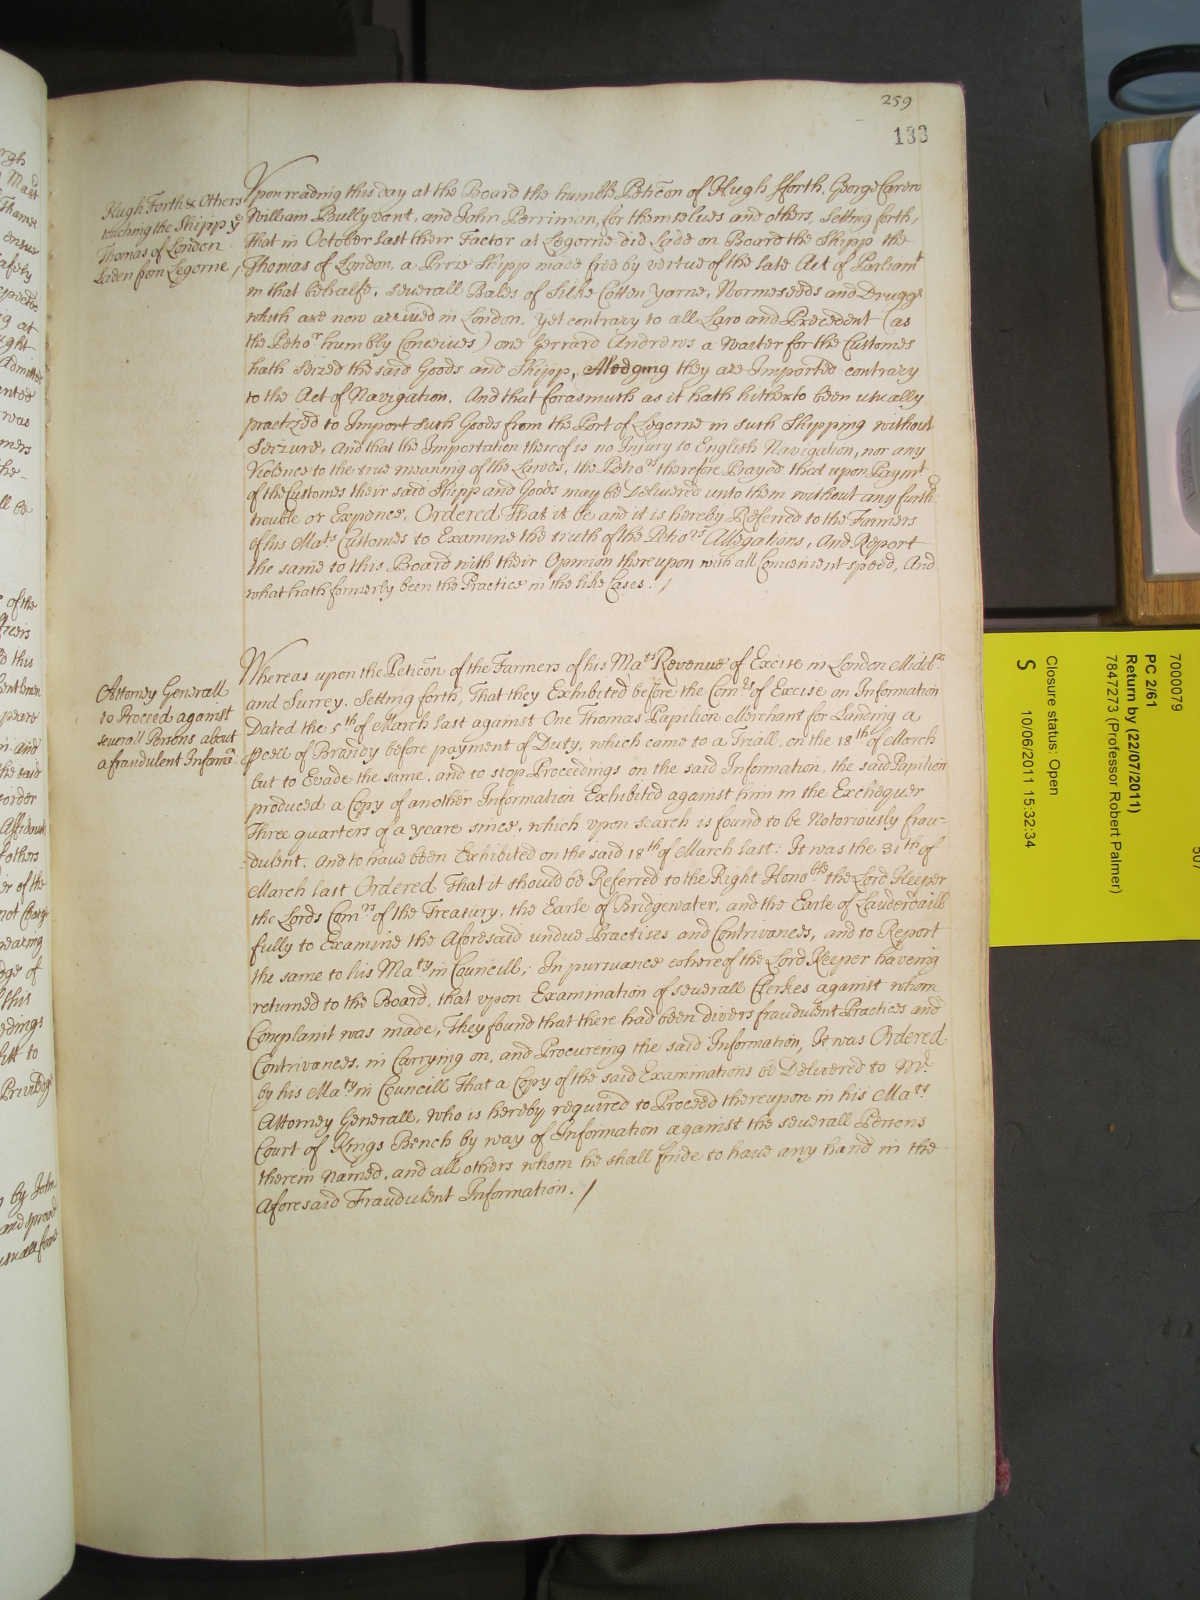 259
133
Hugh Forth & Others
touching the Shipp ye
Thomas of London
Laden from Legorne /
Upon reading this day at the Board the humble Petic̃on of Hugh fforth, George Carew
William Bullyvant, and John Perriman, for themselves and others, Setting forth,
that in October last their Factor at Legorne did Lade on Board the Shipp the
Thomas of London, a Prize Shipp made free by vertue of the late Act of Parliamt
in that behalfe, severall Bales of Silke Cotten Yarne, Wormeseeds and Druggs
which are now arrived in London, yet contrary to all Law and Precedent (as
the Petior humbly Conceives) one Gerrard Andrews a Waiter for the Customes
hath Seized the said Goods and Shipp, Alledging they are Imported contrary
to the Act of Navigation. And that forasmuch as it hath hitherto been usually
practized to Import such Goods from the Port of Legorne in such Shipping without
Seizure, And that the Importation thereof is no Injury to English Navigation, nor any
Violence to the true meaning of the Lawes, the Petiors therefore Prayed that upon Paymt
of the Customes their said Shipp and Goods may be Delivered unto them without any furthr
trouble or Expence. Ordered That it be and it is hereby Referred to the Farmers
of his Mats Customes to Examine the truth of the Petiors Allegations, And Report
the same to this Board with their Opinion thereupon with all Convenient speed, And
what hath formerly been the Practice in the like Cases. /
Attorney Generall
to Proceed against
severall Persons about
a fraudulent Informa.
Whereas upon the Petic̃on of the Farmers of his Mats Revenue of Excise in London Middx
and Surrey, Setting forth, That they Exhibited before the Com̃rs of Excise an Information
Dated the 5th of March last against One Thomas Papilion Merchant for Landing a
pcell of Brandy before payment of Duty, which came to a Triall, on the 18th of March
but to Evade the same, and to stop Proceedings on the said Information, the said Papilion
produced a Copy of another Information Exhibited against him in the Exchequer
Three quarters of a yeare since, which upon search is found to be Notoriously frau-
-dulent, And to have been Exhibited on the said 18th of March last: It was the 31th of
March last Ordered That it should be Referred to the Right Honoble the Lord Keeper
the Lords Com̃rs of the Treasury, the Earle of Bridgewater, and the Earle of Lauderdaill
fully to Examine the Aforesaid undue Practises and Contrivances, and to Report
the same to his Maty in Councill, In pursuance whereof the Lord Keeper haveing
returned to the Board, that upon Examination of severall Clerkes against whom
Complanit was made, They found that there had been divers fraudulent Practices and
Contrivances, in Carrying on, and Procureing the said Information, It was Ordered
by his Maty in Councill That a Copy of the said Examinations be Delivered to Mr
Attorney Generall, who is hereby required to Proceed thereupon in his Mats
Court of Kings Bench by way of Information against the severall Persons
therein Named, and all others whom he shall finde to have any hand in the
Aforesaid Fraudulent Information. /
7000079
PC 2/61
Return by (22/07/2011)
7847273 (Professor Robert Palmer)
Closure status: Open
S 10/06/2011 15:32:34